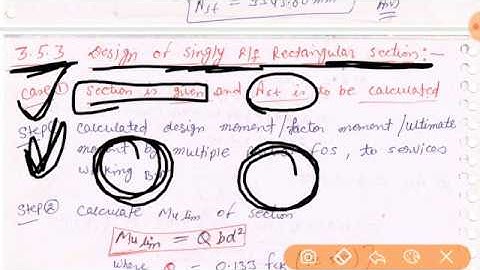 Ast = 
3.5.3 Design of Singly R/f Rectangular section:-
Case ① Section is given and Ast is to be calculated
Step ① calculated design moment/factor moment/ultimate
moment by multiple FOS, to services
working BM
Step ② Calculate Mu lim of section
Mu lim = Q bd²
where Q = 0.133 fck